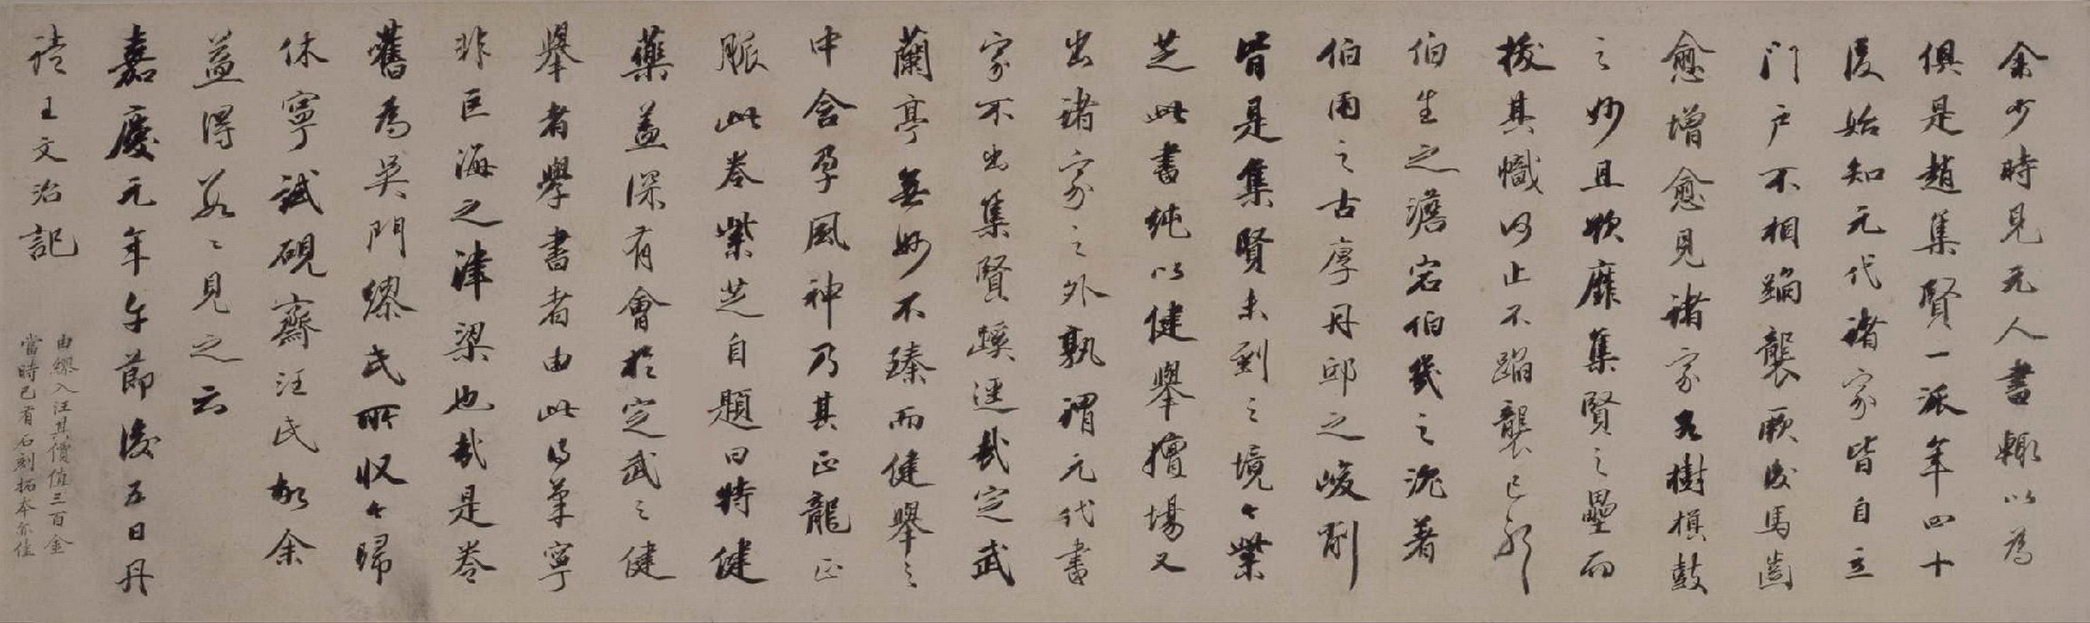 余少時見元人書輒以為
俱是趙集賢一派年四十
後始知元代諸家皆自立
門戶不相蹈襲厥後馬齒
愈增愈見諸家各樹旗鼓
之妙且欲靡集賢之壘而
拔其幟何止不蹈襲已耶
伯生之澹宕伯幾之沉著
伯雨之古厚丹邱之峻削
皆是集賢未到之境々紫
芝此書純以健舉擅場又
出諸家之外孰謂元代書
家不出集賢蹊逕哉定武
蘭亭無妙不臻而健舉之
中含孕風神乃其正龍正
脈此卷紫芝自題曰特健
藥蓋深有會於定武之健
舉者學書者由此得筆寧
非巨海之津梁也哉是卷
舊為吳門繆氏所收今歸
休寧試硯齋汪氏故余
益得數々見之云
嘉慶元年午節後五日丹
徒王文治記
由繆入汪其價值三百金
當時已有石刻拓本亦佳